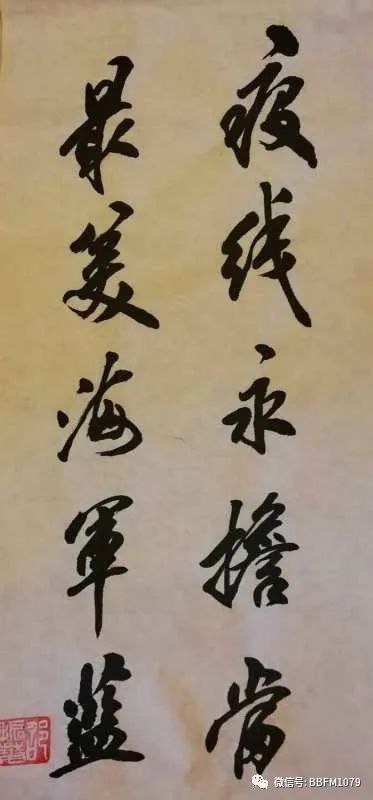 疫线永擔当
最美海軍蓝
微信号: BBFM1079